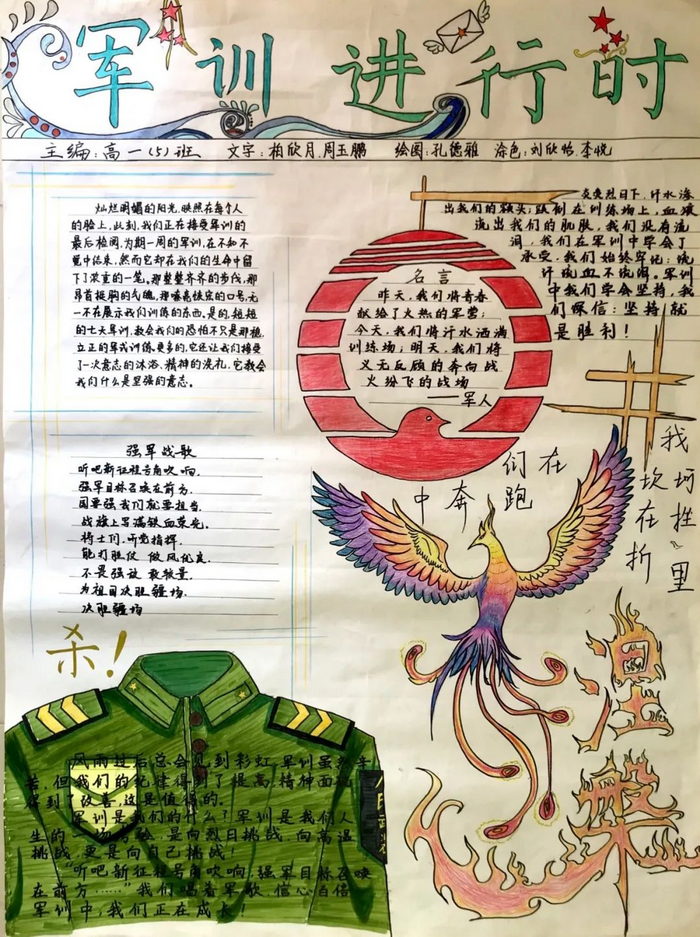 军训进行时
主编:高一(5)班 文字:柏欣月.周玉鹏 绘图:孔德雅 涂色:刘欣怡.李悦
灿烂明媚的阳光,映照在每个人
的脸上,此刻,我们正在接受军训的
最后检阅,为期一周的军训,在不知不
觉中结束,然而它却在我们的生命中留
下了浓重的一笔。那整整齐齐的步伐,那
昂首挺胸的气魄,那嘹亮快乐的口号,无
一不在展示我们训练的东西。是的,短短
的七天军训,教会我们的恐怕不只是那稍
立正的军式训练,更多的,它还让我们接受
了一次意志的沐浴、精神的洗礼,它教会
我们什么是坚强的意志。
名言
昨天,我们将青春
献给了火热的军营;
今天,我们将汗水洒满
训练场;明天,我们将
义无反顾的奔向战
火纷飞的战场
——军人
炎炎烈日下,汗水渗
出我们的额头;跌倒在训练场上,血液
流出我们的肌肤,我们没有流
泪,我们在军训中学会了
承受,我们始终牢记:流
汗流血不流泪。军训
中我们学会坚持,我
们深信:坚持就
是胜利!
强军战歌
听吧新征程号角吹响,
强军目标召唤在前方,
国要强我们就要担当,
战旗上写满铁血荣光。
将士们,听党指挥,
能打胜仗 做风优良,
不畏强敌 敢较量,
为祖国决胜疆场,
决胜疆场
我们在坎坷里奔跑
在挫折中涅槃
杀!
风雨过后总会见到彩虹,军训虽然辛
苦,但我们的纪律得到了提高,精神面貌
得到了改善,这是值得的。
军训是我们的什么?军训是我们人
生的一场考验,是向烈日挑战,向高温
挑战,更是向自己挑战!
“听吧新征程号角吹响,强军目标召唤
在前方……”我们唱着军歌,信心百倍
军训中,我们正在成长!